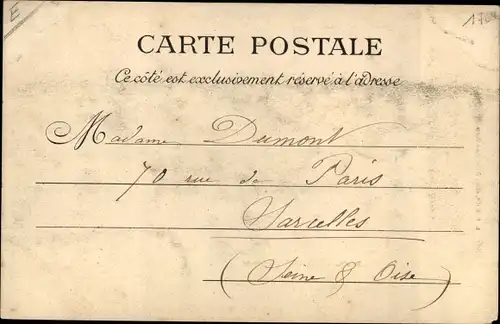 E
CARTE POSTALE
Ce côté est exclusivement réservé à l'adresse
Madame Dumont
70 rue de Paris
Sarcelles
(Seine & Oise)